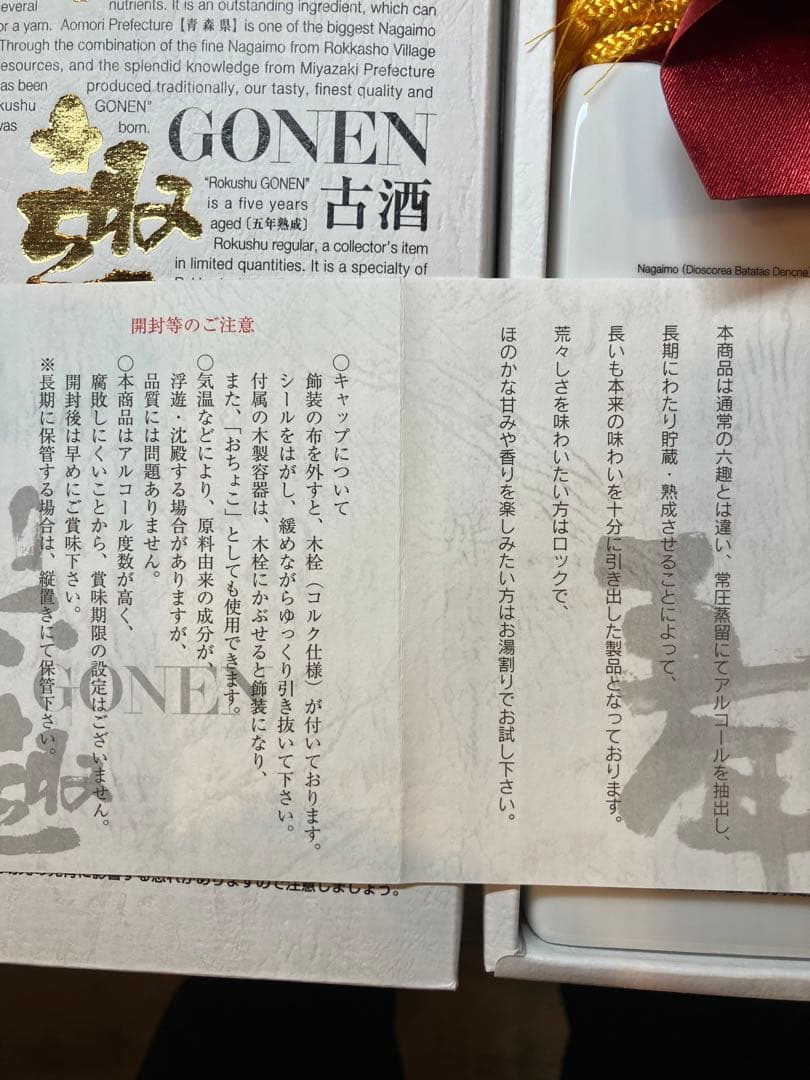 everal nutrients. It is an outstanding ingredient, which can
or a yam. Aomori Prefecture【青森県】is one of the biggest Nagaimo
Through the combination of the fine Nagaimo from Rokkasho Village
esources, and the splendid knowledge from Miyazaki Prefecture
as been produced traditionally, our tasty, finest quality and
kushu GONEN"
was born.
GONEN
古酒
"Rokushu GONEN"
is a five years
aged〔五年熟成〕
Rokushu regular, a collector's item
in limited quantities. It is a specialty of
Nagaimo (Dioscorea Batatas Dencne
本商品は通常の六趣とは違い、常圧蒸留にてアルコールを抽出し、
長期にわたり貯蔵・熟成させることによって、
長いも本来の味わいを十分に引き出した製品となっております。
荒々しさを味わいたい方はロックで、
ほのかな甘みや香りを楽しみたい方はお湯割りでお試し下さい。
開封等のご注意
○キャップについて
飾装の布を外すと、木栓（コルク仕様）が付いております。
シールをはがし、緩めながらゆっくり引き抜いて下さい。
付属の木製容器は、木栓にかぶせると飾装になり、
また、「おちょこ」としても使用できます。
○気温などにより、原料由来の成分が、
浮遊・沈殿する場合がありますが、
品質には問題ありません。
○本商品はアルコール度数が高く、
腐敗しにくいことから、賞味期限の設定はございません。
開封後は早めにご賞味下さい。
※長期に保管する場合は、縦置きにて保管下さい。
GONEN
影響する恐れがありますので注意しましょう。